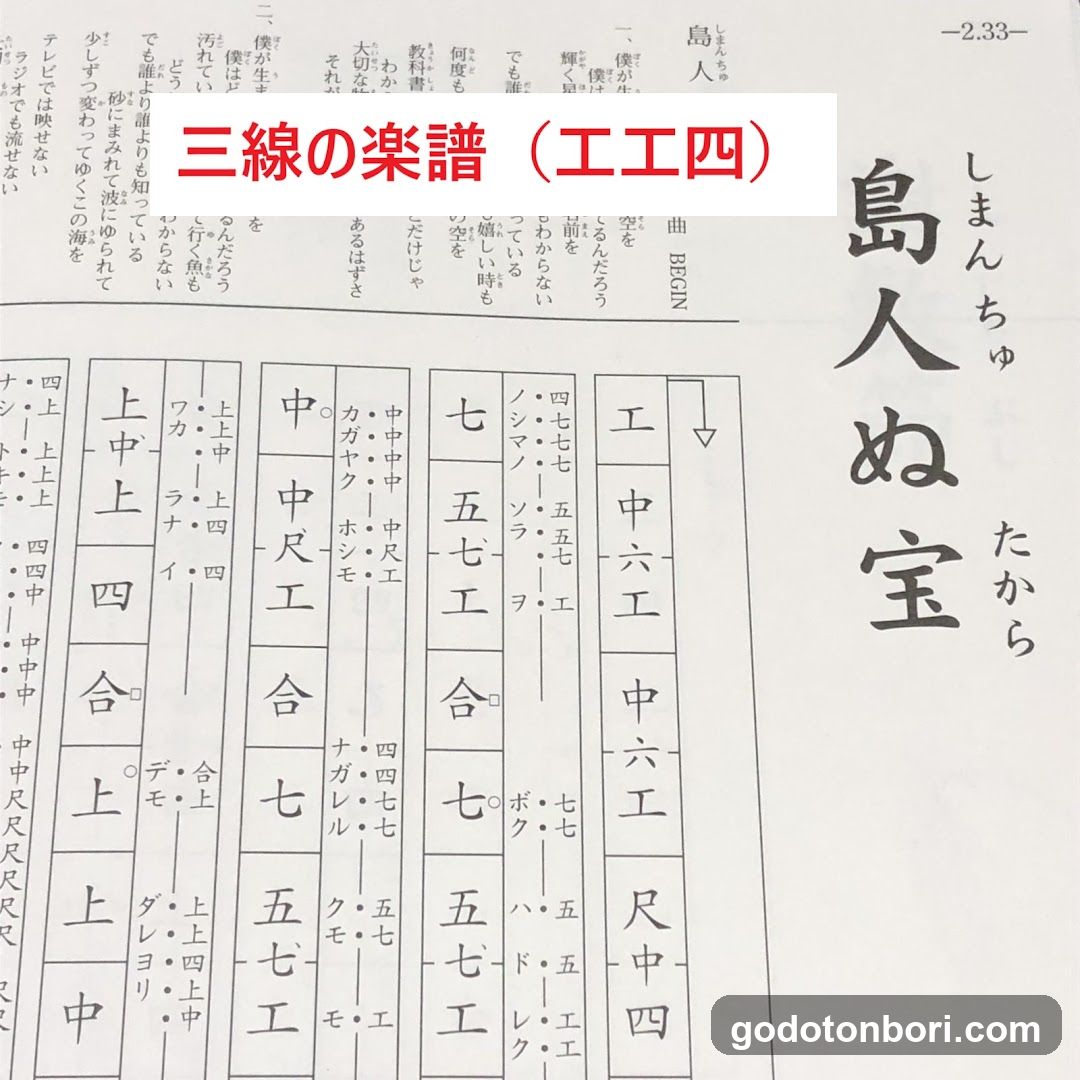 —2.33—
しまんちゅ たから
島人ぬ宝
三線の楽譜（工工四）
島人
曲 BEGIN
一、僕が生 空を
僕は てるんだろう
輝く星 名前を
でも誰 もわからない
っている
何度も も嬉しい時も
教科書 の空を
わか とだけじゃ
大切な物 あるはずさ
それが
二、僕が生ま を
僕はど るんだろう
汚れてい て行く魚も
どう わからない
でも誰より誰よりも知っている
砂にまみれて波にゆられて
少しずつ変わってゆくこの海を
テレビでは映せない
ラジオでも流せない
工 中 六 工 中 六 工 尺 中 四
四七七七 五五七 工 七七 五 五 工工
ノシマノ ソラ ヲ ボク ハ ド レク
七 五 七 工 合 七 五 七 工
中中中中 中尺工 四四七七 五七 工
カガヤク ホシモ ナガレル クモ モ
中 中 尺 工 合 七 五 七 工
上上中 上四 四 合上 上上四上中
ワカ ラナ イ デモ ダレヨリ
上 中 上 四 合 上 上 中
四上 上上 四四中 中中中 中中尺尺尺尺尺尺